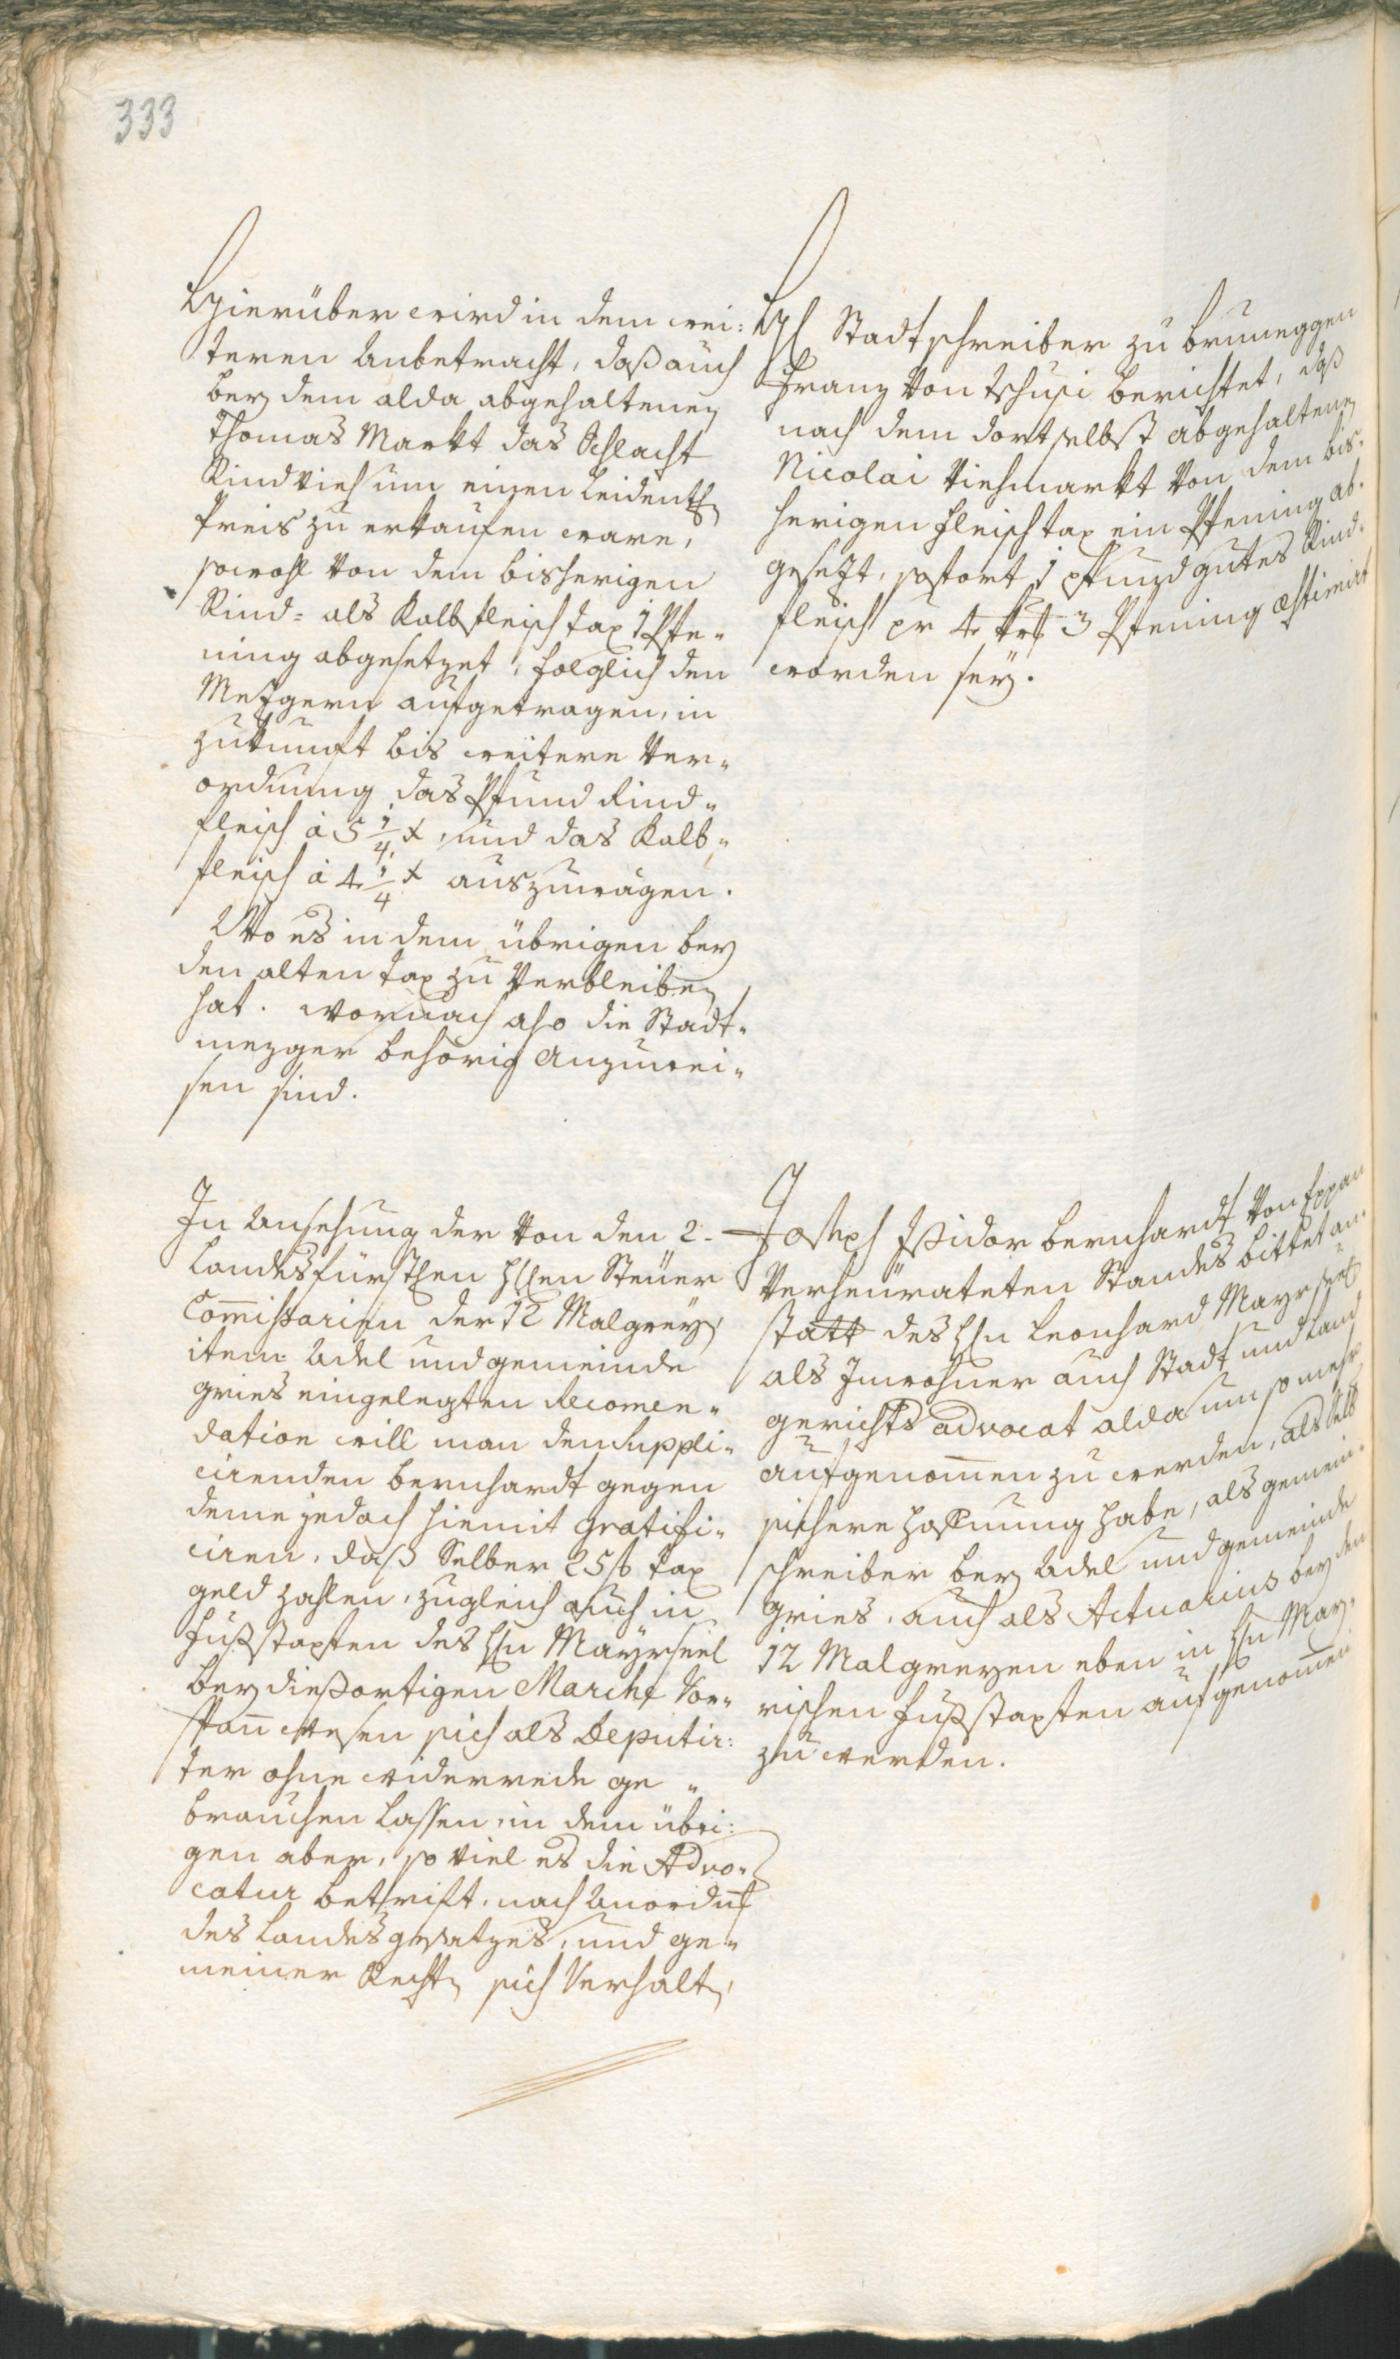 333
Hierüber wird in dem wei:
teren Anbetracht, daß auch
bey dem alda abgehaltenen
Thomas Markt das Schlacht
Rindvieh um einen leidentl:
Preis zu erkaufen ware,
sowohl von dem bisherigen
Rind- als Kalbfleisch tax 1 Pfe-
ning abgesetzet, folglich den
Mezgern aufgetragen, in
zukunft bis weitere Ver-
ordnung das Pfund Rind-
fleisch à 5 1/4 x, und das Kalb-
fleisch à 4 1/4 x auszuwägen.
Wo es in dem übrigen bey
den alten tax zu verbleiben
hat. wornach also die Stadt-
mezger behörig anzuwei-
sen sind.
H: Stadtschreiber zu bruneggen
Franz von Tschusi berichtet, daß
nach dem dortselbst abgehaltenen
Nicolai Viehmarkt von dem bis-
herigen fleischtax ein Pfening ab-
gesezt, sofort 1 pfund gutes Rind-
fleisch pr 4 kr 3 Pfening æstimirt
worden seÿ.
In Ansehung der von den 2.
Landesfürstlen Hlen Steuer
Com̅issarien der 12 Malgreÿ,
item Adel und gemeinde
gries eingelegten Recomen-
dation will man den Suppli-
cirenden bernhardt gegen
deme jedoch hiemit gratifi-
ciren, daß Selber 25 f tax
geld zahlen, zugleich auch in
Fußstapfen des Hn Mayrseel
bey dießortigen Marche Vor-
span̅ wesen sich als Deputir:
ter ohne widerrede ge-
brauchen lassen, in dem übri:
gen aber, so viel es die Advo-
catur betrift, nach Anordnu̅g
des Landes gesatzes, und ge-
meiner Rechten sich Verhalten,
Joseph Isidor bernhardt von Eppan
verheürateten Standes bittet an-
statt des Hn Leonhard Mayrseel
als Inwohner auch Stadt und Land
gerichts advocat alda um so mehr
aufgenom̅en zu werden, als Selb
sichere Hofnung habe, als gemein-
schreiber bey Adel und gemeinde
gries, auch als Actuarius bey den
12 Malgreyen eben in Hn May-
rischen Fußstapfen aufgenom̅en
zu werden.